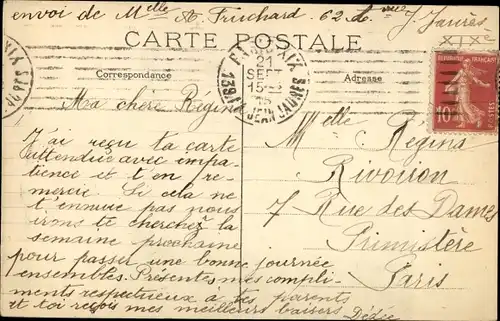 envoi de Mlle A. Fruchard 62 J. Jaurès
XIXe
CARTE POSTALE
Correspondance
Adresse
21
SEPT
15
JEAN JAURÈS
POSTES
RÉPUBLIQUE FRANÇAISE
10
Ma chère Régina
J'ai reçu ta carte
attendue avec impa-
tience et t'en re-
mercie. Si cela ne
t'ennuie pas nous
irons te chercher la
semaine prochaine
pour passer une bonne journée
ensembles. Présentes mes compli-
ments respectueux a tes parents
et toi reçois mes meilleurs baisers Dédée
Melle Régina
Rivoiron
7 Rue des Dames
Paris